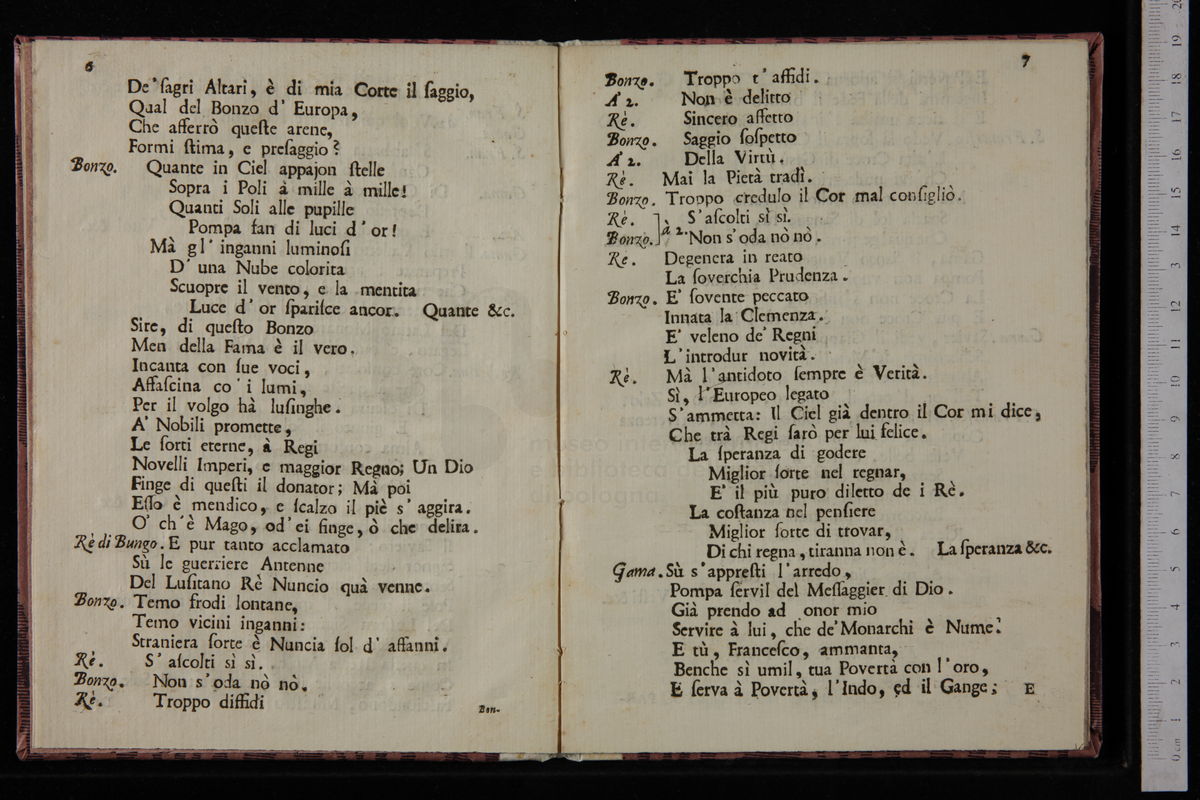 6
De' ſagri Altari, è di mia Corte il ſaggio,
Qual del Bonzo d' Europa,
Che afferrò queſte arene,
Formi ſtima, e preſaggio?
Bonzo. Quante in Ciel appajon ſtelle
Sopra i Poli à mille à mille!
Quanti Soli alle pupille
Pompa fan di luci d' or!
Mà gl' inganni luminoſi
D' una Nube colorita
Scuopre il vento, e la mentita
Luce d' or ſpariſce ancor. Quante &c.
Sire, di queſto Bonzo
Men della Fama è il vero.
Incanta con ſue voci,
Affaſcina co' i lumi,
Per il volgo hà luſinghe.
A' Nobili promette,
Le ſorti eterne, à Regi
Novelli Imperi, e maggior Regno; Un Dio
Finge di queſti il donator; Mà poi
Eſſo è mendico, e ſcalzo il piè s' aggira.
O' ch' è Mago, od' ei finge, ò che delira.
Rè di Bungo. E pur tanto acclamato
Sù le guerriere Antenne
Del Luſitano Rè Nuncio quà venne.
Bonzo. Temo frodi lontane,
Temo vicini inganni:
Straniera ſorte è Nuncia ſol d' affanni.
Rè. S' aſcolti sì sì.
Bonzo. Non s' oda nò nò.
Rè. Troppo diffidi
Bon-
7
Bonzo. Troppo t' affidi.
A' 2. Non è delitto
Rè. Sincero affetto
Bonzo. Saggio ſoſpetto
A' 2. Della Virtù.
Rè. Mai la Pietà tradì.
Bonzo. Troppo credulo il Cor mal conſigliò.
Rè. S' aſcolti sì sì.
Bonzo. à 2. Non s' oda nò nò.
Rè. Degenera in reato
La ſoverchia Prudenza.
Bonzo. E' ſovente peccato
Innata la Clemenza.
E' veleno de' Regni
L' introdur novità.
Rè. Mà l' antidoto ſempre è Verità.
Sì, l' Europeo legato
S' ammetta: Il Ciel già dentro il Cor mi dice,
Che trà Regi ſarò per lui felice.
La ſperanza di godere
Miglior ſorte nel regnar,
E' il più puro diletto de i Rè.
La coſtanza nel penſiere
Miglior ſorte di trovar,
Di chi regna, tiranna non è. La ſperanza &c.
Gama. Sù s' appreſti l' arredo,
Pompa ſervil del Meſſaggier di Dio.
Già prendo ad onor mio
Servire à lui, che de' Monarchi è Nume.
E tù, Franceſco, ammanta,
Benche sì umil, tua Povertà con l' oro,
E ſerva à Povertà, l' Indo, ed il Gange; E